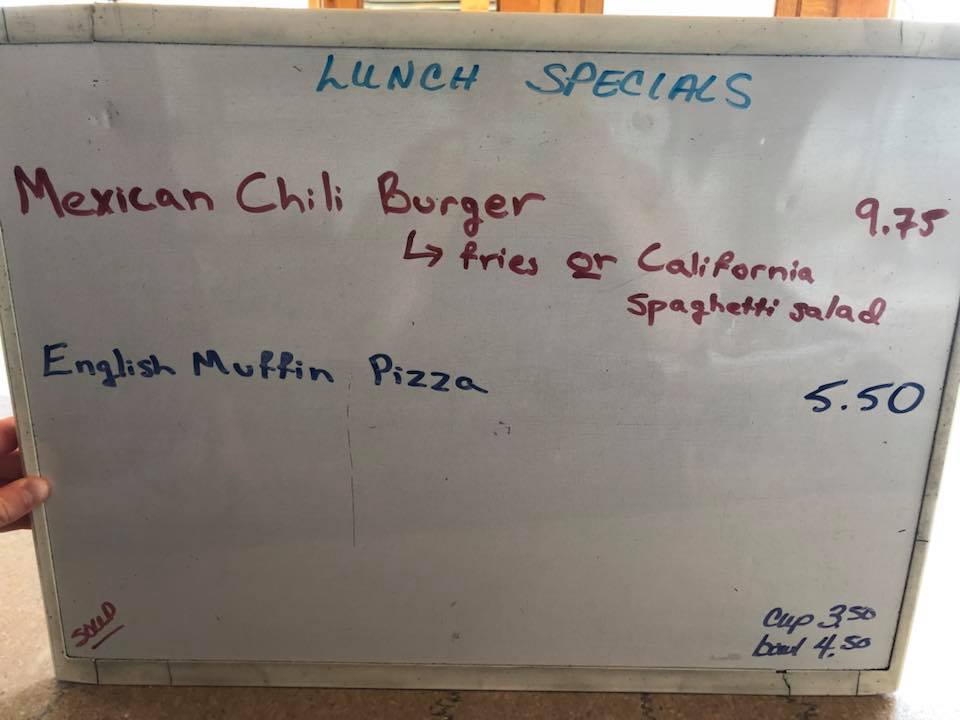 LUNCH SPECIALS
Mexican Chili Burger 9.75
↳ fries or California
spaghetti salad
English Muffin Pizza 5.50
SOUP
Cup 3.50
bowl 4.50